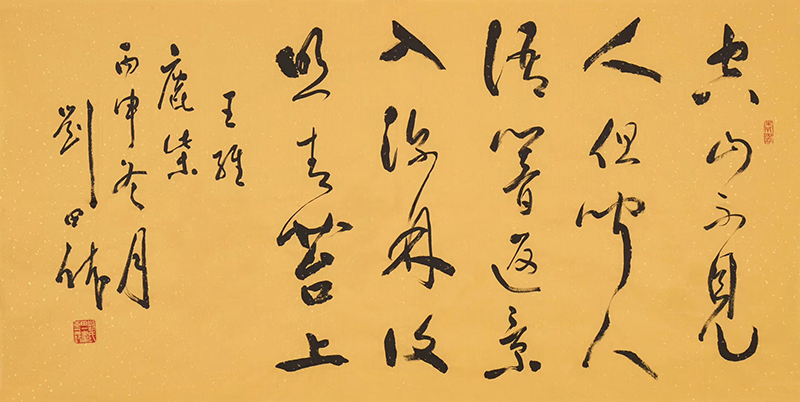 空山不見
人但聞人
語響返景
入深林復
照青苔上
王維
鹿柴
丙申冬月
劉